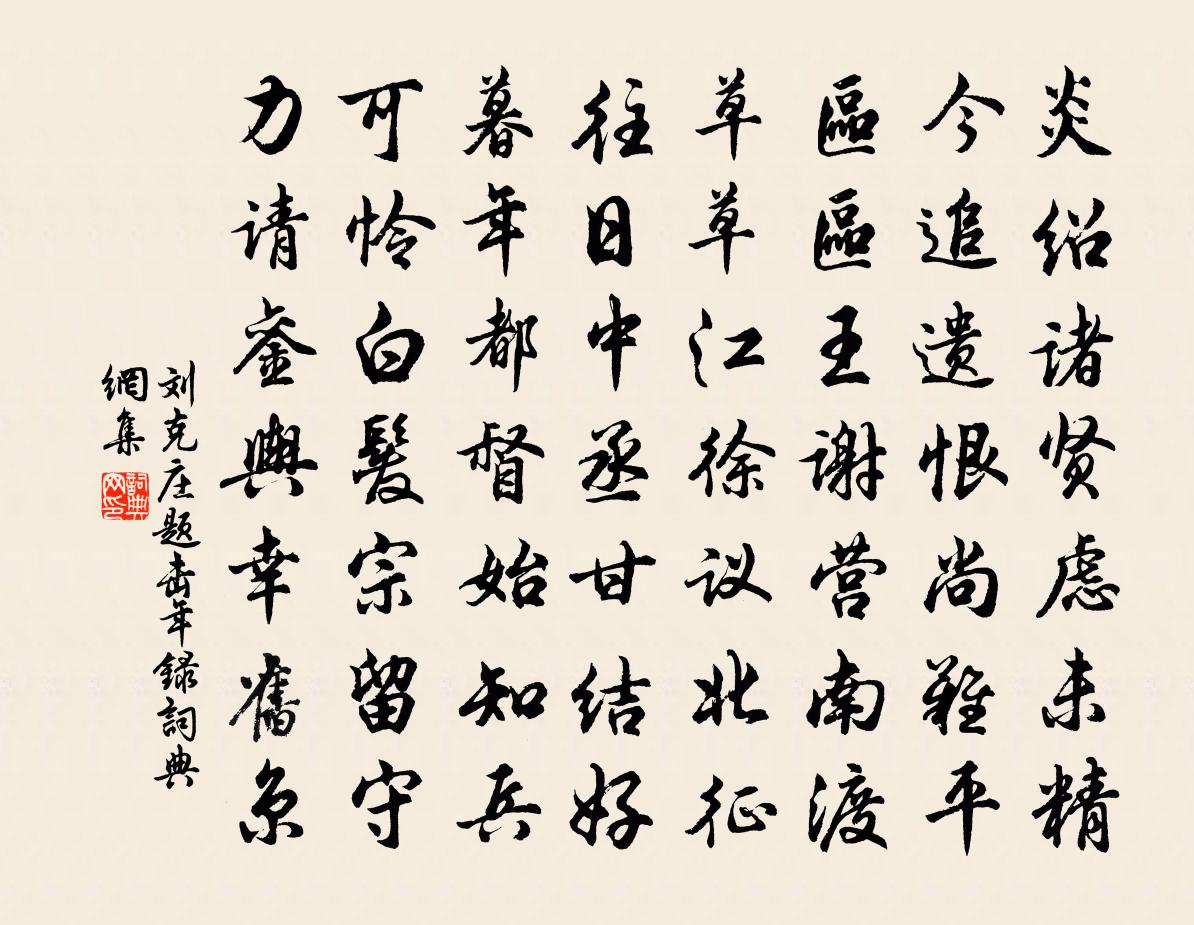 炎绍诸贤虑未精
今追遗恨尚難平
區區王谢营南渡
草草江徐议北征
往日中丞甘结好
暮年都督始知兵
可怜白髮宗留守
力请銮輿幸舊京
刘克庄题击年録詞典
網集
詞典
网印